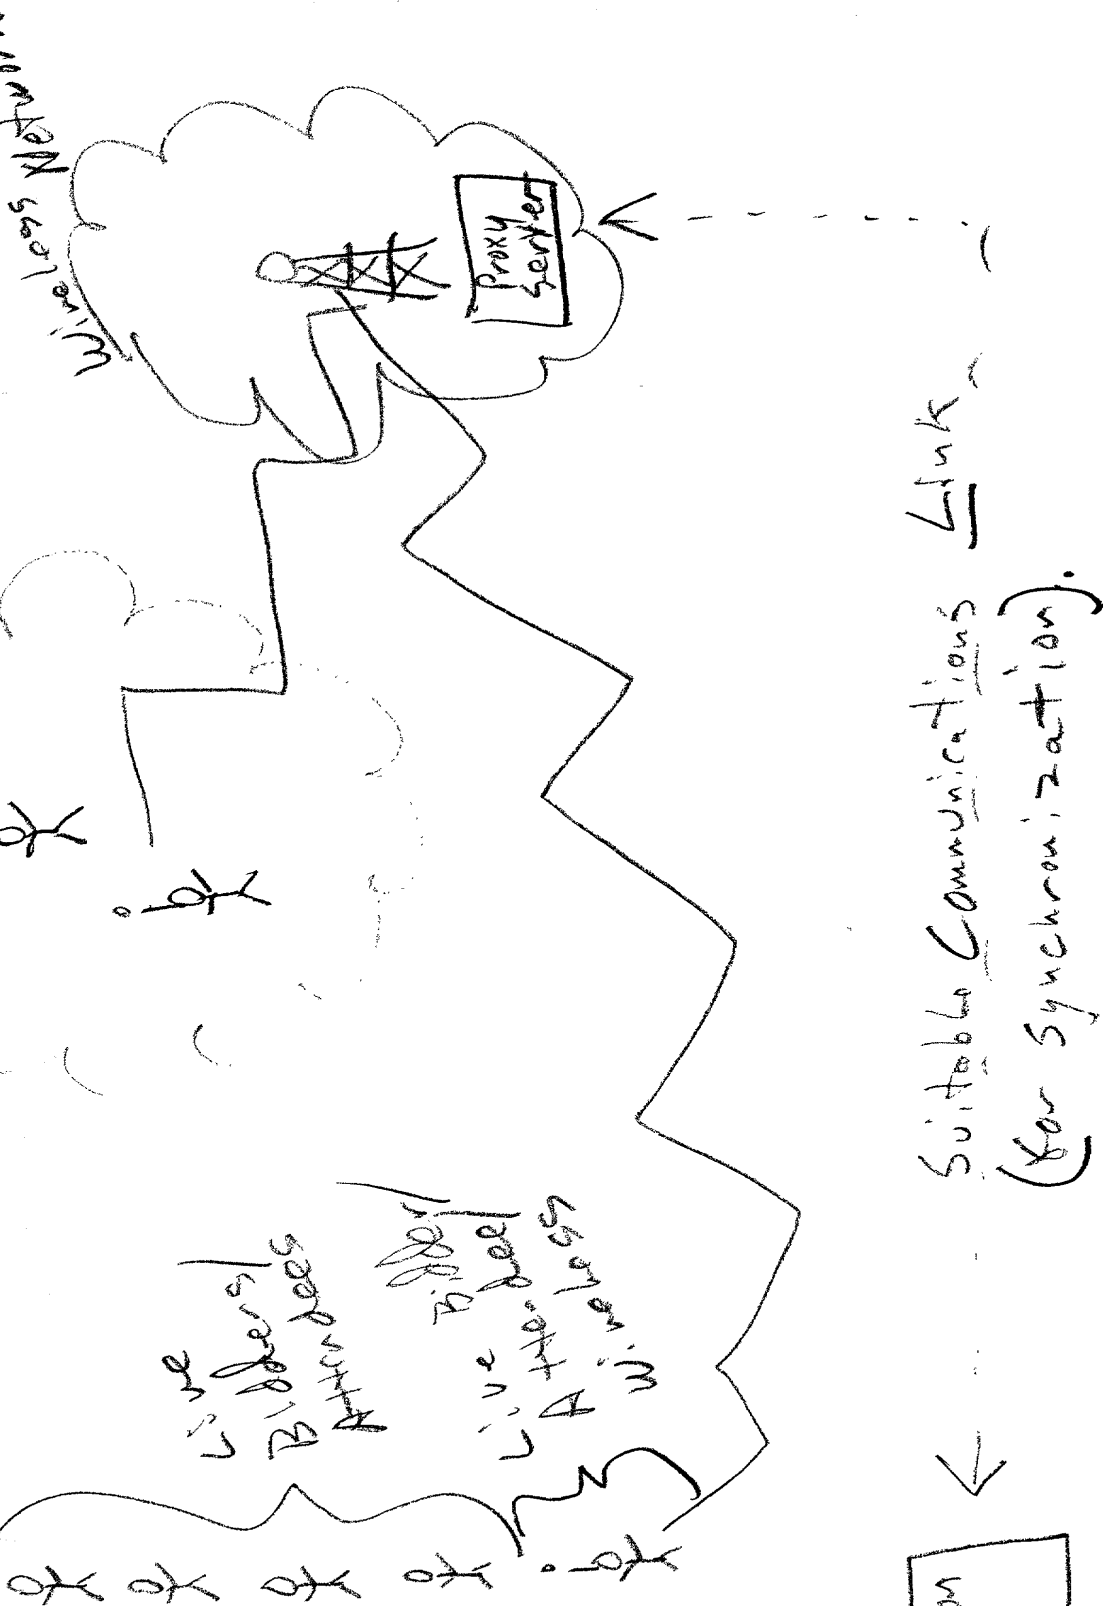 Wireless Network
Proxy
Server
Live
Bidders/
Attendees
Live Bidder/
Attendee/
Wireless
Suitable Communications Link
(for Synchronization).